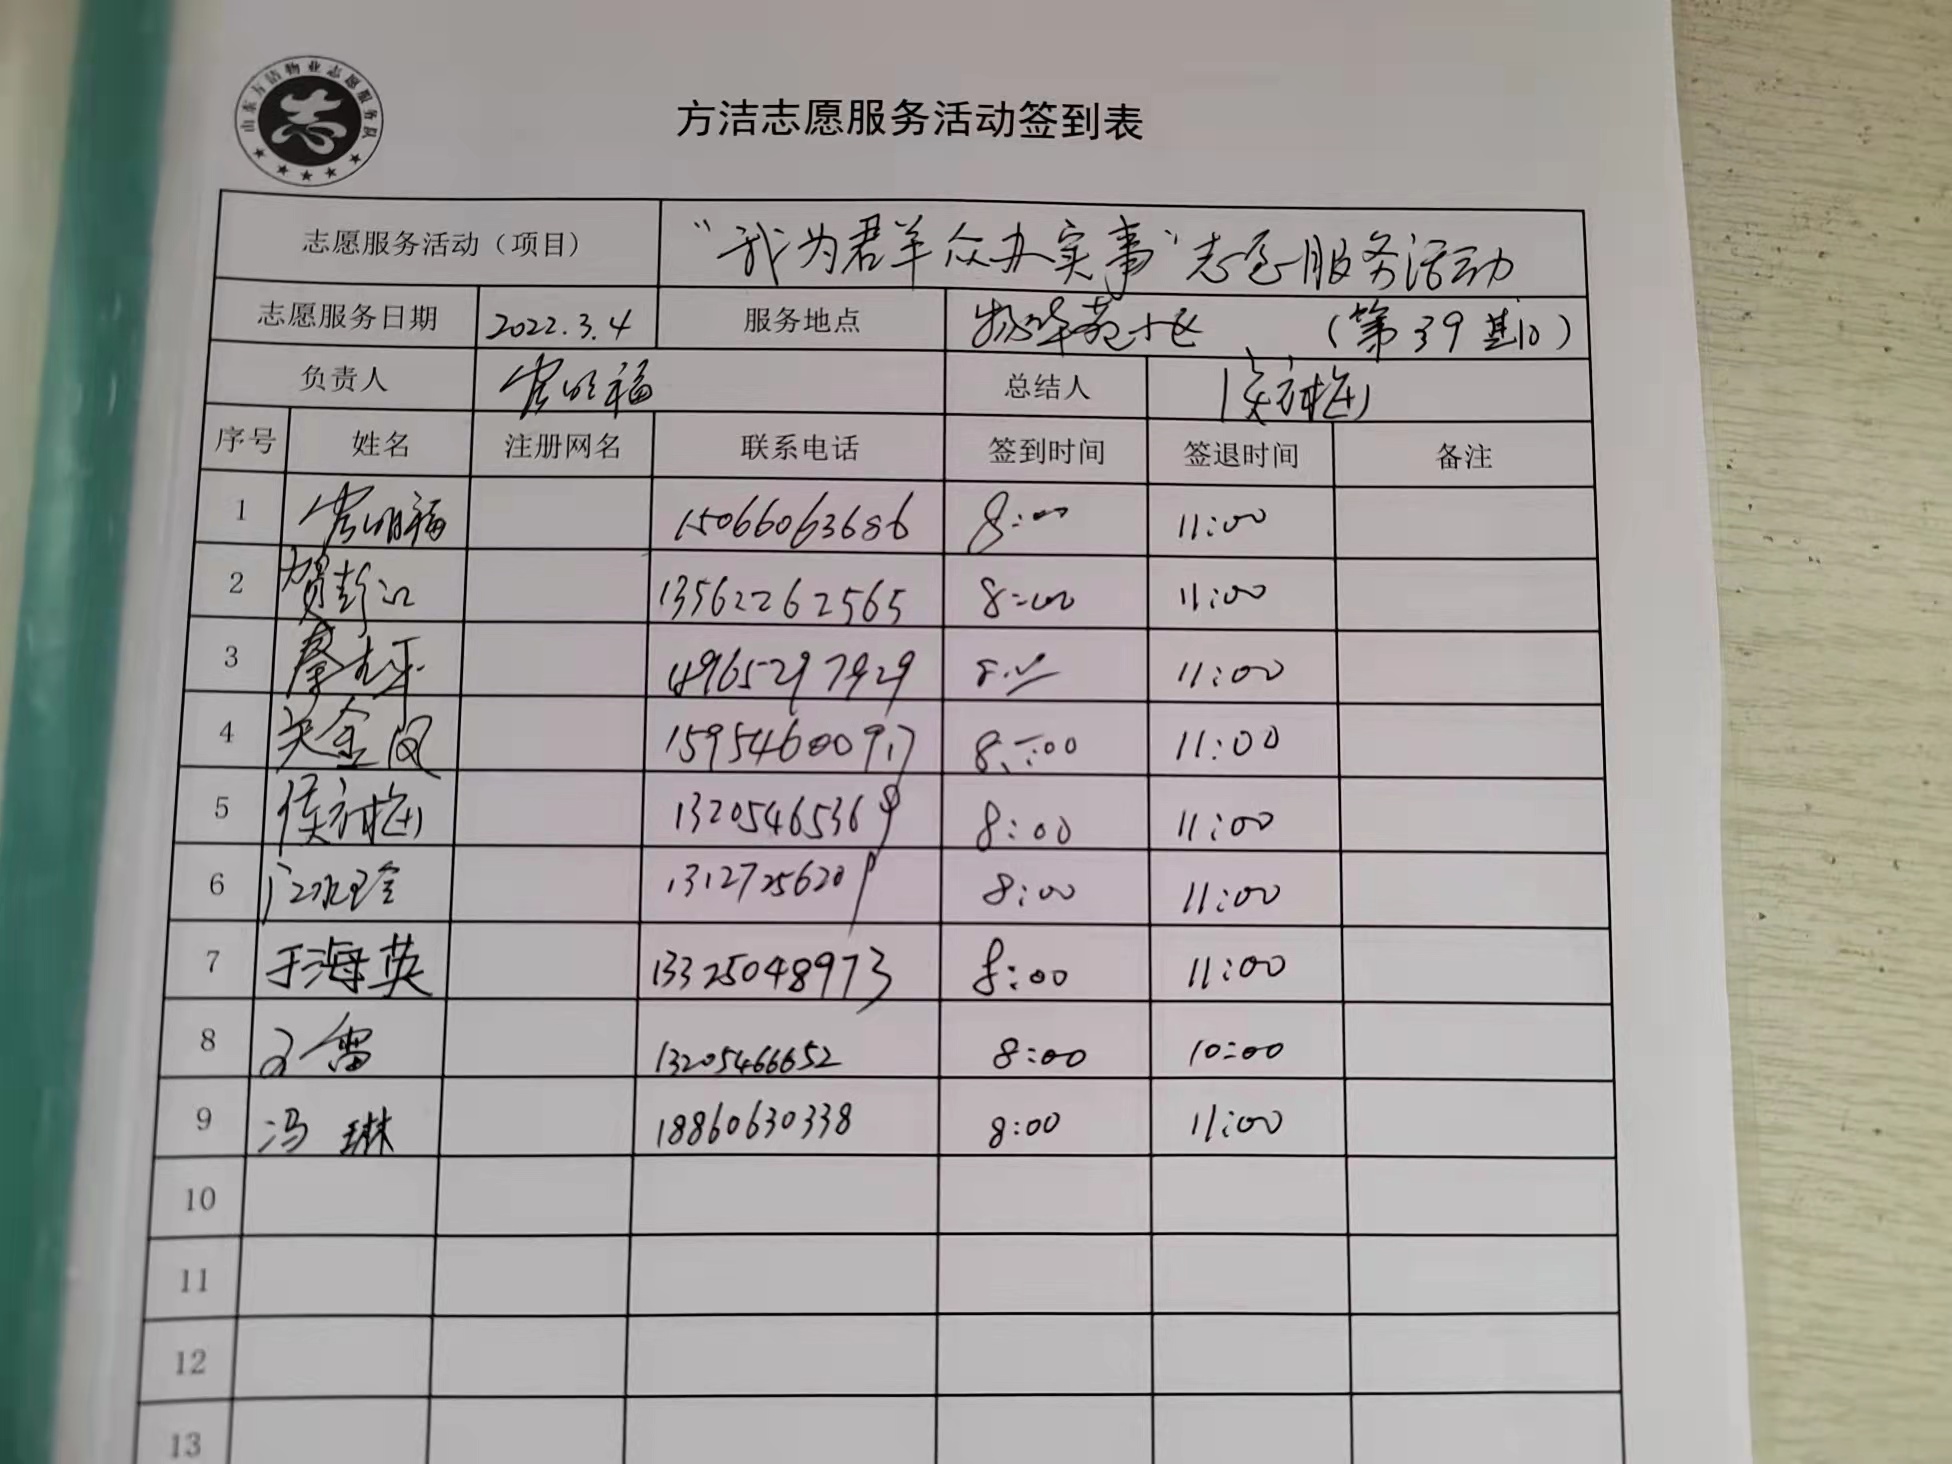 山东方洁物业志愿服务队
志
方洁志愿服务活动签到表
志愿服务活动（项目） “我为群众办实事”志愿服务活动
志愿服务日期 2022.3.4 服务地点 物华苑小区 （第39期）
负责人 总结人
序号 姓名 注册网名 联系电话 签到时间 签退时间 备注
1 15066063686 8:00 11:00
2 贺彭江 13562262565 8:00 11:00
3 11:00
4 关金凤 15954600917 8:00 11:00
5 13205465369 8:00 11:00
6 13127256209 8:00 11:00
7 于海英 13325048973 8:00 11:00
8 13205466652 8:00 10:00
9 冯琳 18860630338 8:00 11:00
10
11
12
13